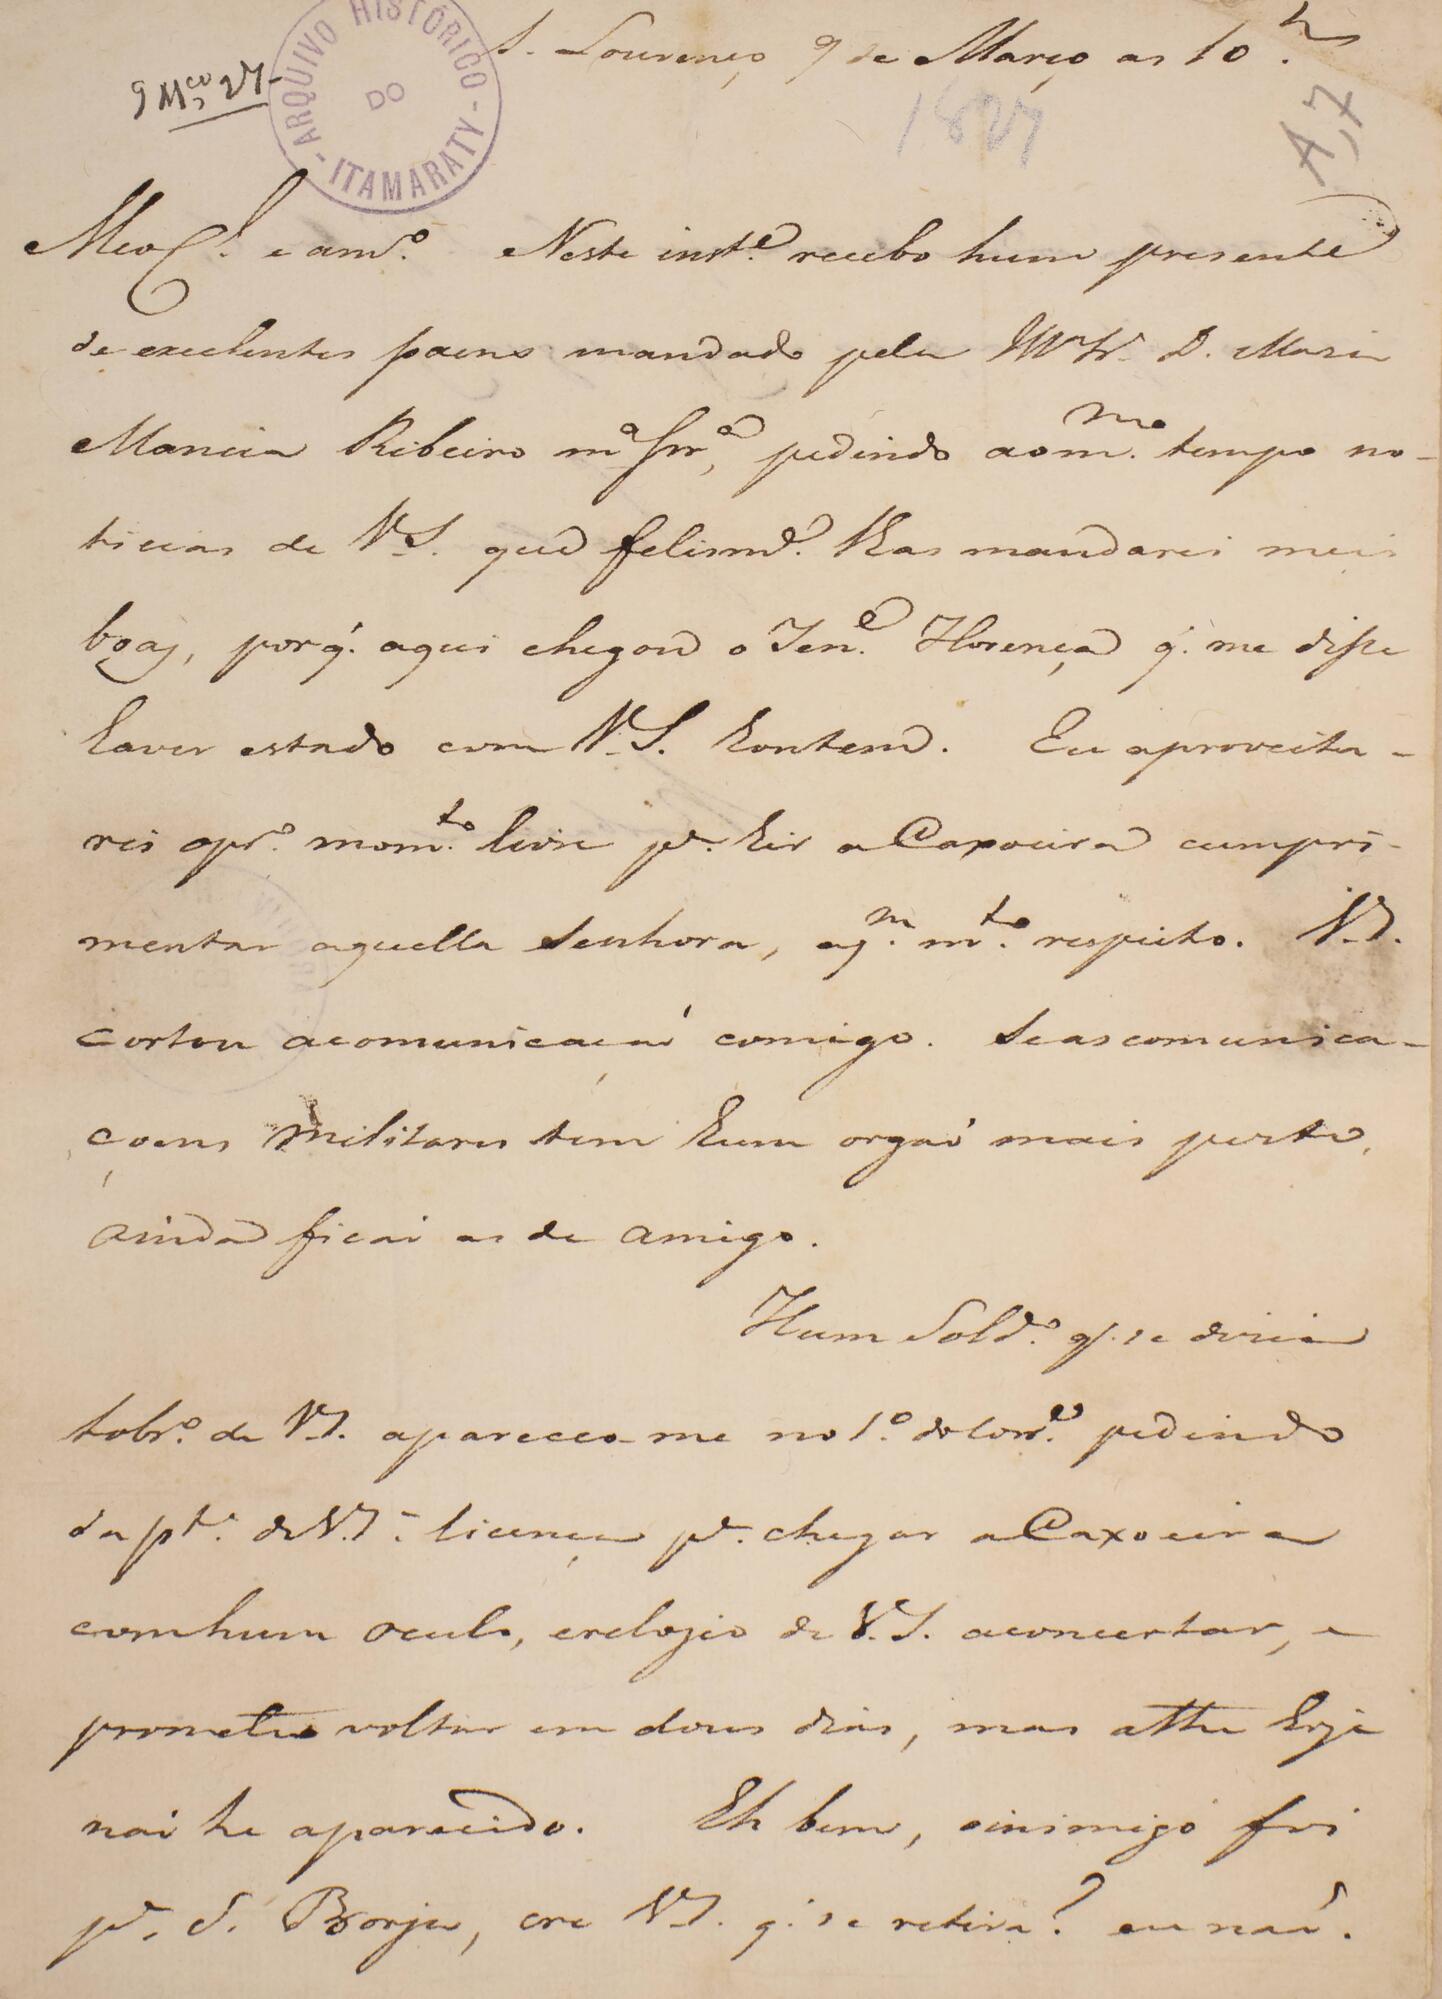 S. Lourenço 9 de Março as 10 h.s
9 M.ço 27
ARQUIVO HISTÓRICO DO ITAMARATY
1827
A,7
Meo C. e am.o Neste inst.e recebo hum presente
de excelentes paens mandado pela D. Maria
Mancia Ribeiro m.a Snr.a, pedindo ao m.mo tempo no-
ticias de V.S. que felism.e lhas mandarei mui
boas, porq. aqui chegou o Ten.e Florença q. me disse
haver estado com V.S. hontem. Eu aproveita-
rei o pr.o mom.to livre p.a hir a Caxoeira cumpri-
mentar aquella Senhora, a q.m m.to respeito. V.S.
cortou a comunicacaó comigo. Se as comunica-
çoens militares tem hum orgaó mais perto,
ainda ficaó as de amigo.
Hum Sold.o q. se dizia
sobr.o de V.S. apareceo-me no 1.o do corr.e pedindo
da p.te de V.S. licença p.a chegar a Caxoeira
com hum oculo, e relogio de V.S. a concertar, e
prometeo voltar em dous dias, mas athe hoje
naó he aparecido. Eh bem, o inimigo foi
p.a S. Borja, cre V.S. q. se retira? eu naó.